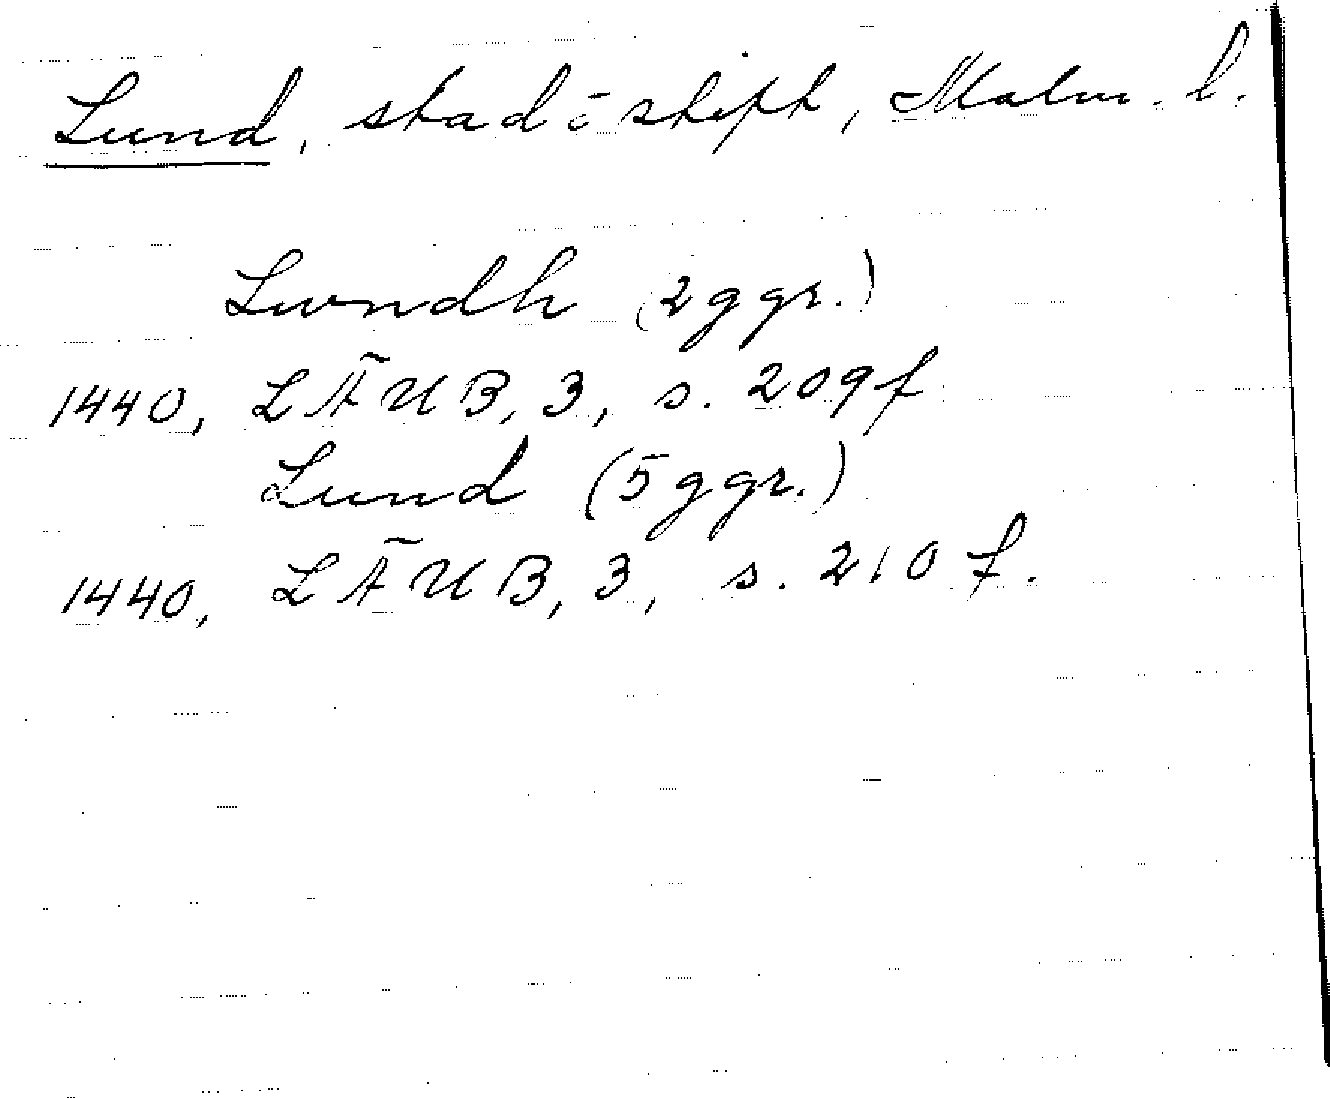 Lund, stad o. stift, Malm. l.
Lundh (2 ggr.)
1440, LÄUB, 3, s. 209 f
Lund (5 ggr.)
1440, LÄUB, 3, s. 210 f.